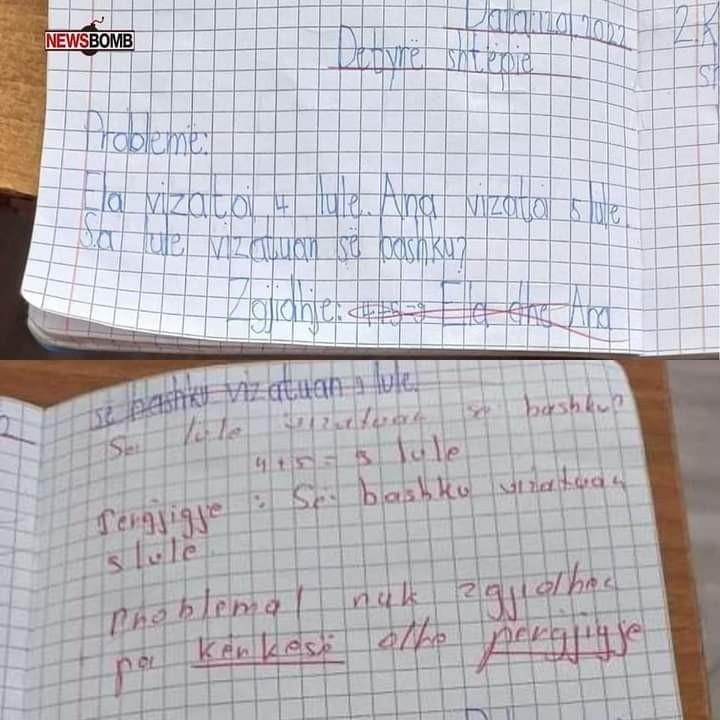 NEWSBOMB
Detyrë shtëpie
2.K
Problemë:
Ela vizatoi 4 lule. Ana vizatoi 5 lule.
Sa lule vizatuan së bashku?
Zgjidhje: 4+5=9 Ela dhe Ana
së bashku vizatuan 9 lule.
Sa lule vizatuan së bashku?
4+5= 9 lule
Pergjigje : Së bashku vizatuan
9 lule
Problemat nuk zgjidhen
pa kërkesë dhe pergjigje